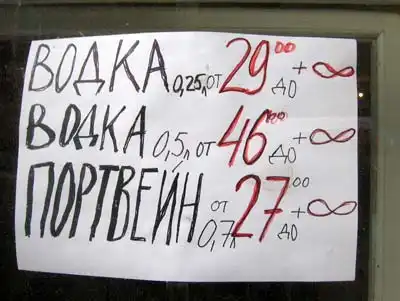 ВОДКА 0,25л от 29 00 до + ∞
ВОДКА 0,5л от 46 00 до + ∞
ПОРТВЕЙН от 0,7л 27 00 до + ∞